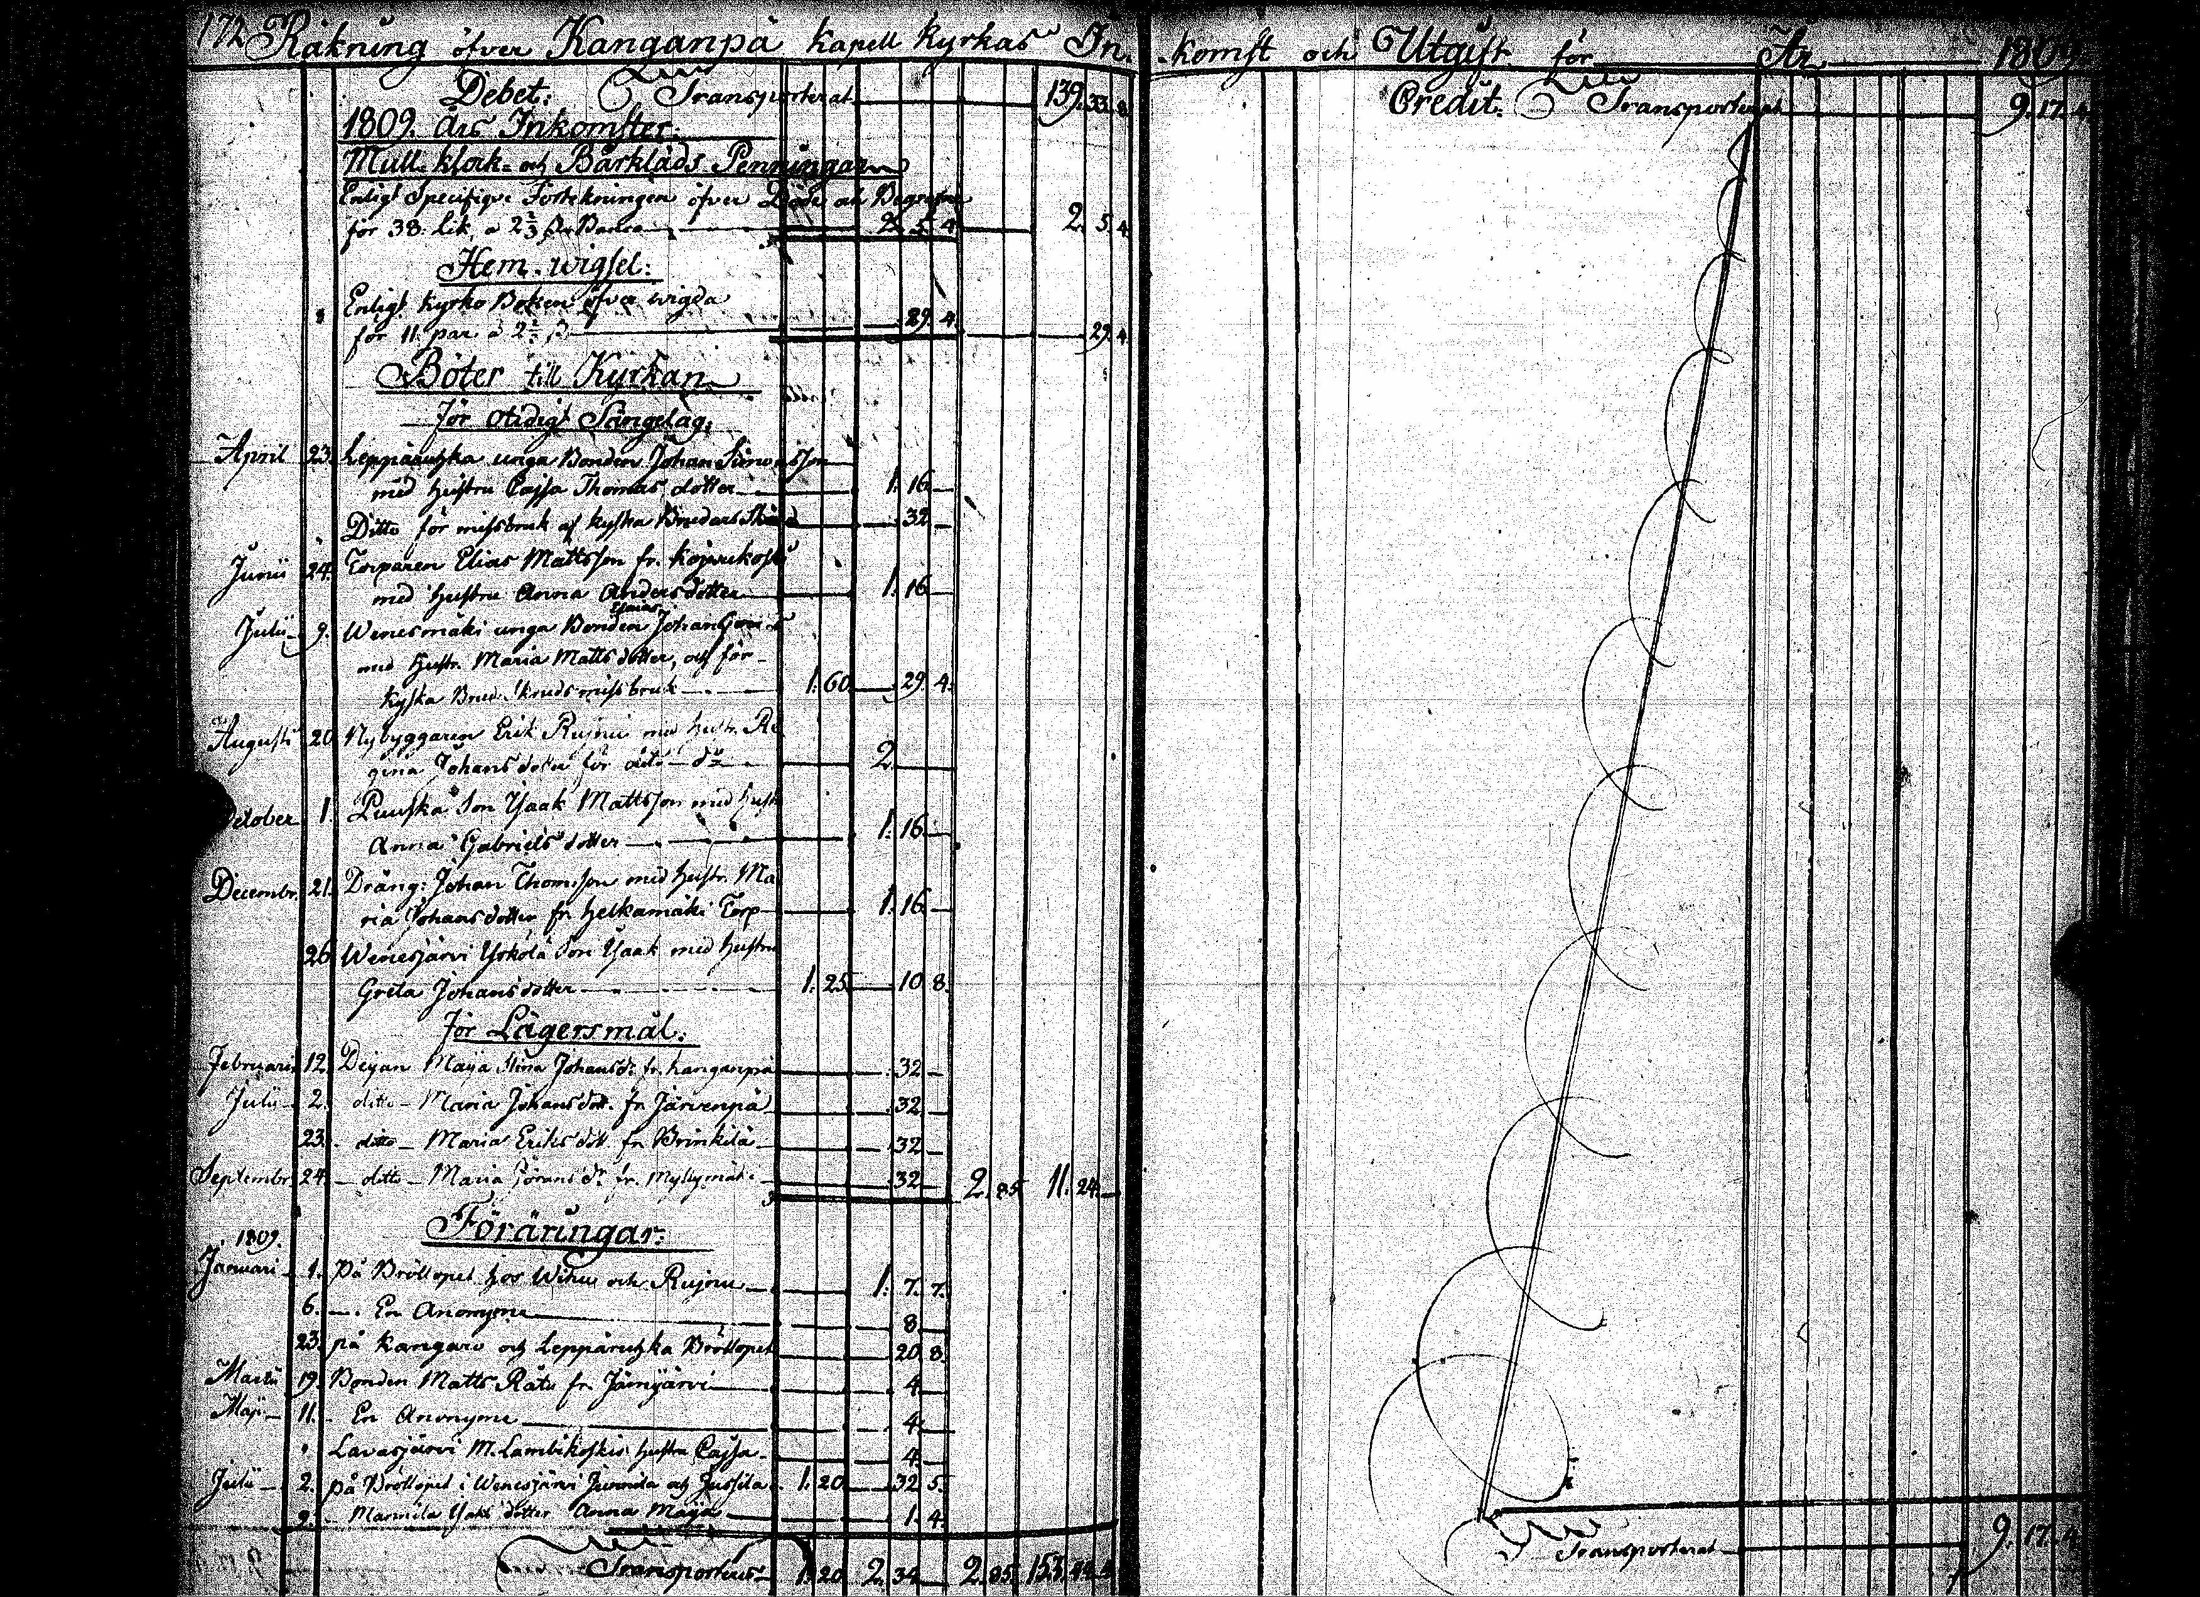 172 Räkning öfver Kanganpä Kapell Kyrkas In-
Debet. Transporterat 139. 33. 8.
1809. års Inkomster.
Mull- klock- och Bårkläds Penningar
Enligt Specifique Förtekningen öfver Döde och Begrafne
för 38. lik, a 2 2/3 ß. Banco 2. 5. 4. 2. 5. 4.
Hem-wigsel:
Enligt Kyrko Boken öfver wigda
för 11. par à 2 2/3 ß 29. 4. 29. 4.
Böter till Kyrkan
för otidigt Sängelag:
April 23. Leppäruhka unga Bonden Johan
med hustru Cajsa Thomas dotter 1. 16.
Ditto för missbruk af kyska Brudars 32.
Junii 24. Torparen Elias Mattsson fr.
med hustru Anna Anders dotter 1. 16.
Julii 9. Wenesmäki unga Bonden Johan
med hustr. Maria Matts dotter, och för
kyska Brud-skruds missbruk 1. 60. 29. 4.
Augusti 20 Nybyggaren Erik Rujnu med hustr. Re
gina Johans dotter för dito do 2.
October 1. son Ysaak Mattsson med hust
Anna Gabriels dotter 1. 16.
Decembr. 21. Dräng: Johan Thomsson med hustr. Ma
ria Johans dotter fr. Helkamäki Torp 1. 16.
26. Wenesjärvi Yrkölä son Ysaak med hustru
Greta Johans dotter 1. 25. 10. 8.
för Lägersmål:
Februarii 12. Deijan Maija Stina Johans dr. fr. Kanganpä 32.
Julii 2. ditto Maria Johans dott. fr. Järvenpä 32.
23. ditto Maria Eriks dott fr. Brinkilä 32.
Septembr. 24. ditto Maria Görans dr. fr. Myllymäki 32. 2. 85. 11. 24.
Föräringar:
1809.
Januari 1. på Bröllopet hos Wihu och Rujnu 1. 7. 7.
6. En Anonyme 8.
23. på Kangaro och Leppäruhka Bröllopet 20. 8.
Martii 19. Bonden Matts Rätu fr. Jämijärvi 4.
Maji 11. En Anonyme 4.
" Lavasjärvi M. Lambikoskis hustru Cajsa 4.
Julii 2. på Bröllopet i Wenesjärvi och Jussila 1. 20. 32. 5.
9. Mannila Ysaks dotter Anna Maija 1. 4.
Transporteras 1. 20. 2. 34. 2. 85. 153. 44. 4.
komst och Utgift för År 1809.
Credit. Transporterat 9. 17. 4.
Transporterat 9. 17. 4.